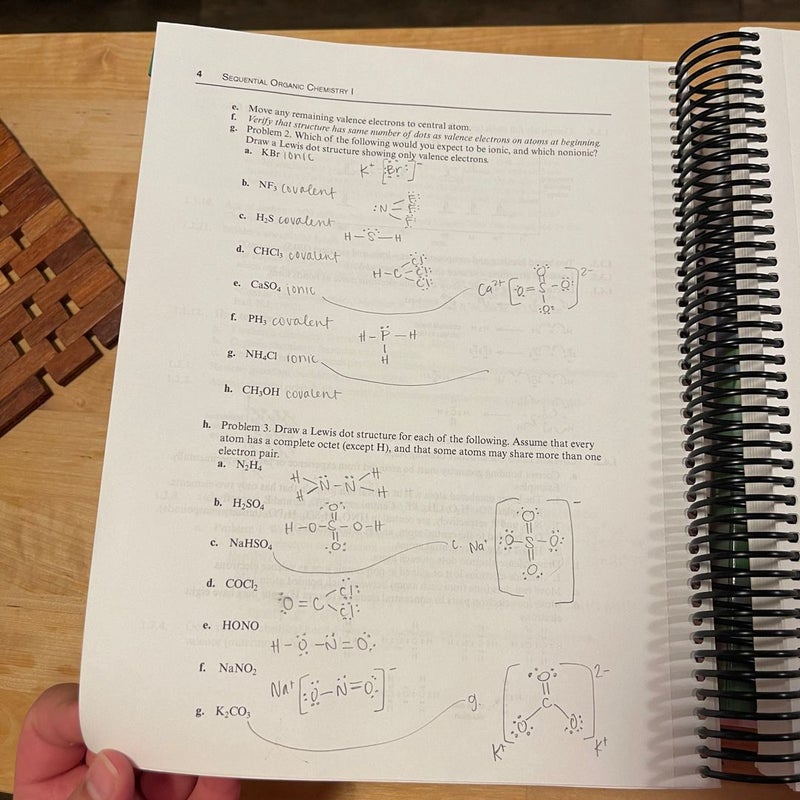 4 SEQUENTIAL ORGANIC CHEMISTRY I
e. Move any remaining valence electrons to central atom.
f. Verify that structure has same number of dots as valence electrons on atoms at beginning.
g. Problem 2. Which of the following would you expect to be ionic, and which nonionic?
Draw a Lewis dot structure showing only valence electrons.
a. KBr ionic
K⁺ [Br]⁻
b. NF₃ covalent
:N F F F
c. H₂S covalent
H–S–H
d. CHCl₃ covalent
H–C Cl Cl Cl
e. CaSO₄ ionic
Ca²⁺ [O=S–O O O]²⁻
f. PH₃ covalent
H–P–H
H
g. NH₄Cl ionic
h. CH₃OH covalent
h. Problem 3. Draw a Lewis dot structure for each of the following. Assume that every
atom has a complete octet (except H), and that some atoms may share more than one
electron pair.
a. N₂H₄
H H N–N H H
b. H₂SO₄
O
H–O–S–O–H
O
c. NaHSO₄
c. Na⁺ [O O–S–O O]⁻
d. COCl₂
O=C Cl Cl
e. HONO
H–O–N=O
f. NaNO₂
Na⁺ [O–N=O]⁻
g. K₂CO₃
g. [O C O O]²⁻
K⁺ K⁺